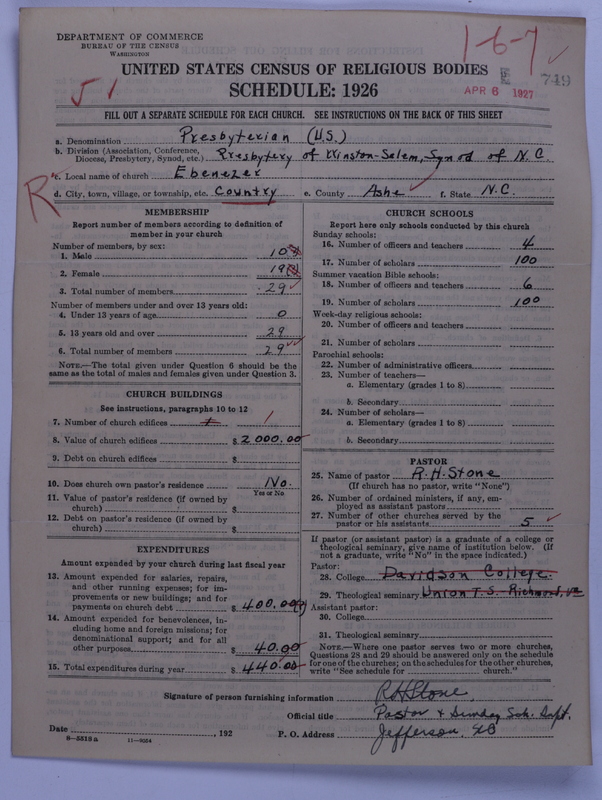 DEPARTMENT OF COMMERCE
BUREAU OF THE CENSUS
WASHINGTON
1-6-7
UNITED STATES CENSUS OF RELIGIOUS BODIES
749
J 1
SCHEDULE: 1926
APR 6 1927
FILL OUT A SEPARATE SCHEDULE FOR EACH CHURCH. SEE INSTRUCTIONS ON THE BACK OF THIS SHEET
a. Denomination Presbyterian (U.S.)
b. Division (Association, Conference, Diocese, Presbytery, Synod, etc.) Presbytery of Winston-Salem, Synod of N.C.
c. Local name of church Ebenezer
R
d. City, town, village, or township, etc. Country e. County Ashe f. State N.C.
MEMBERSHIP
Report number of members according to definition of
member in your church
Number of members, by sex:
1. Male 10
2. Female 19
3. Total number of members 29
Number of members under and over 13 years old:
4. Under 13 years of age 0
5. 13 years old and over 29
6. Total number of members 29
NOTE.—The total given under Question 6 should be the
same as the total of males and females given under Question 3.
CHURCH BUILDINGS
See instructions, paragraphs 10 to 12
7. Number of church edifices 1
8. Value of church edifices $ 2000.00
9. Debt on church edifices $
10. Does church own pastor's residence? No.
Yes or No
11. Value of pastor's residence (if owned by
church) $
12. Debt on pastor's residence (if owned by
church) $
EXPENDITURES
Amount expended by your church during last fiscal year
13. Amount expended for salaries, repairs,
and other running expenses; for im-
provements or new buildings; and for
payments on church debt $ 400.00
14. Amount expended for benevolences, in-
cluding home and foreign missions; for
denominational support; and for all
other purposes $ 40.00
15. Total expenditures during year $ 440.00
CHURCH SCHOOLS
Report here only schools conducted by this church
Sunday schools:
16. Number of officers and teachers 4
17. Number of scholars 100
Summer vacation Bible schools:
18. Number of officers and teachers 6
19. Number of scholars 100
Week-day religious schools:
20. Number of officers and teachers
21. Number of scholars
Parochial schools:
22. Number of administrative officers
23. Number of teachers—
a. Elementary (grades 1 to 8)
b. Secondary
24. Number of scholars—
a. Elementary (grades 1 to 8)
b. Secondary
PASTOR
25. Name of pastor R. H. Stone
(If church has no pastor, write "None")
26. Number of ordained ministers, if any, em-
ployed as assistant pastors
27. Number of other churches served by the
pastor or his assistants 5
If pastor (or assistant pastor) is a graduate of a college or
theological seminary, give name of institution below. (If
not a graduate, write "No" in the space indicated.)
Pastor:
28. College Davidson College.
29. Theological seminary Union T.S. Richmond, Va
Assistant pastor:
30. College
31. Theological seminary
NOTE.—Where one pastor serves two or more churches,
Questions 28 and 29 should be answered only on the schedule
for one of the churches; on the schedules for the other churches,
write "See schedule for church."
Signature of person furnishing information R H Stone
Official title Pastor & Sunday Sch. Supt.
Date , 192 P. O. Address Jefferson, NC
8—5518 a 11—9054